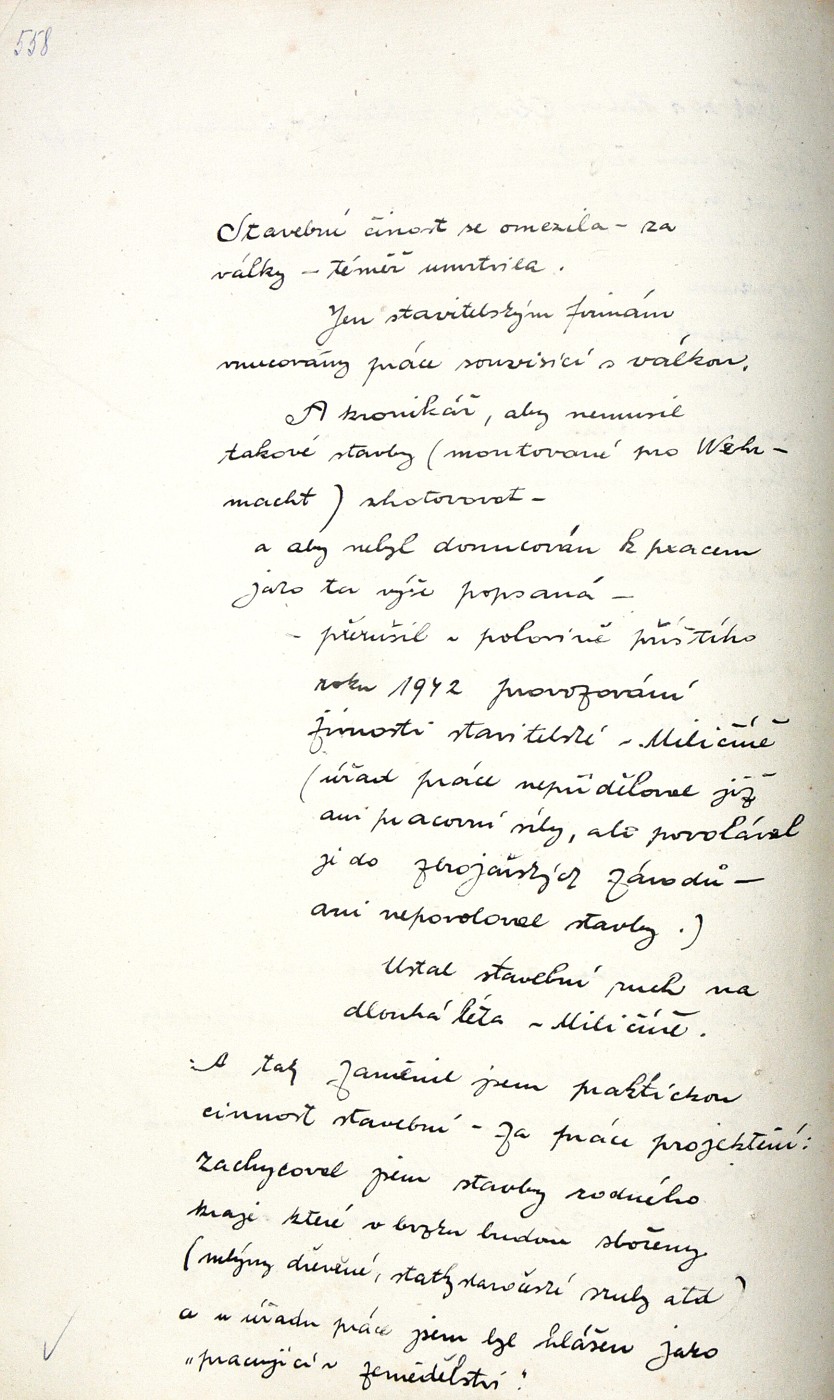 558
Stavební činost se omezila – za
války – téměř umrtvila.
Jen stavitelským firmám
vnucovány práce souvisící s válkou.
A kronikář, aby nemusil
takové stavby (montované pro Wehr-
macht) zhotovovat –
a aby nebyl donucován k pracem
jako ta výše popsaná –
- přerušil v polovině příštího
roku 1942 provozování
živnosti stavitelské v Miličíně
(úřad práce nepřiděloval již
ani pracovní síly, ale povolával
je do zbrojařských závodů –
ani nepovoloval stavby.)
Ustal stavební ruch na
dlouhá léta v Miličíně.
A tak zaměnil jsem praktickou
činnost stavební – za práce projekční:
Zachycoval jsem stavby rodného
kraje které v brzku budou zbořeny
(mlýny dřevěné, statky staročeské sruby atd)
a u úřadu práce jsem byl hlášen jako
"pracující v zemědělství".